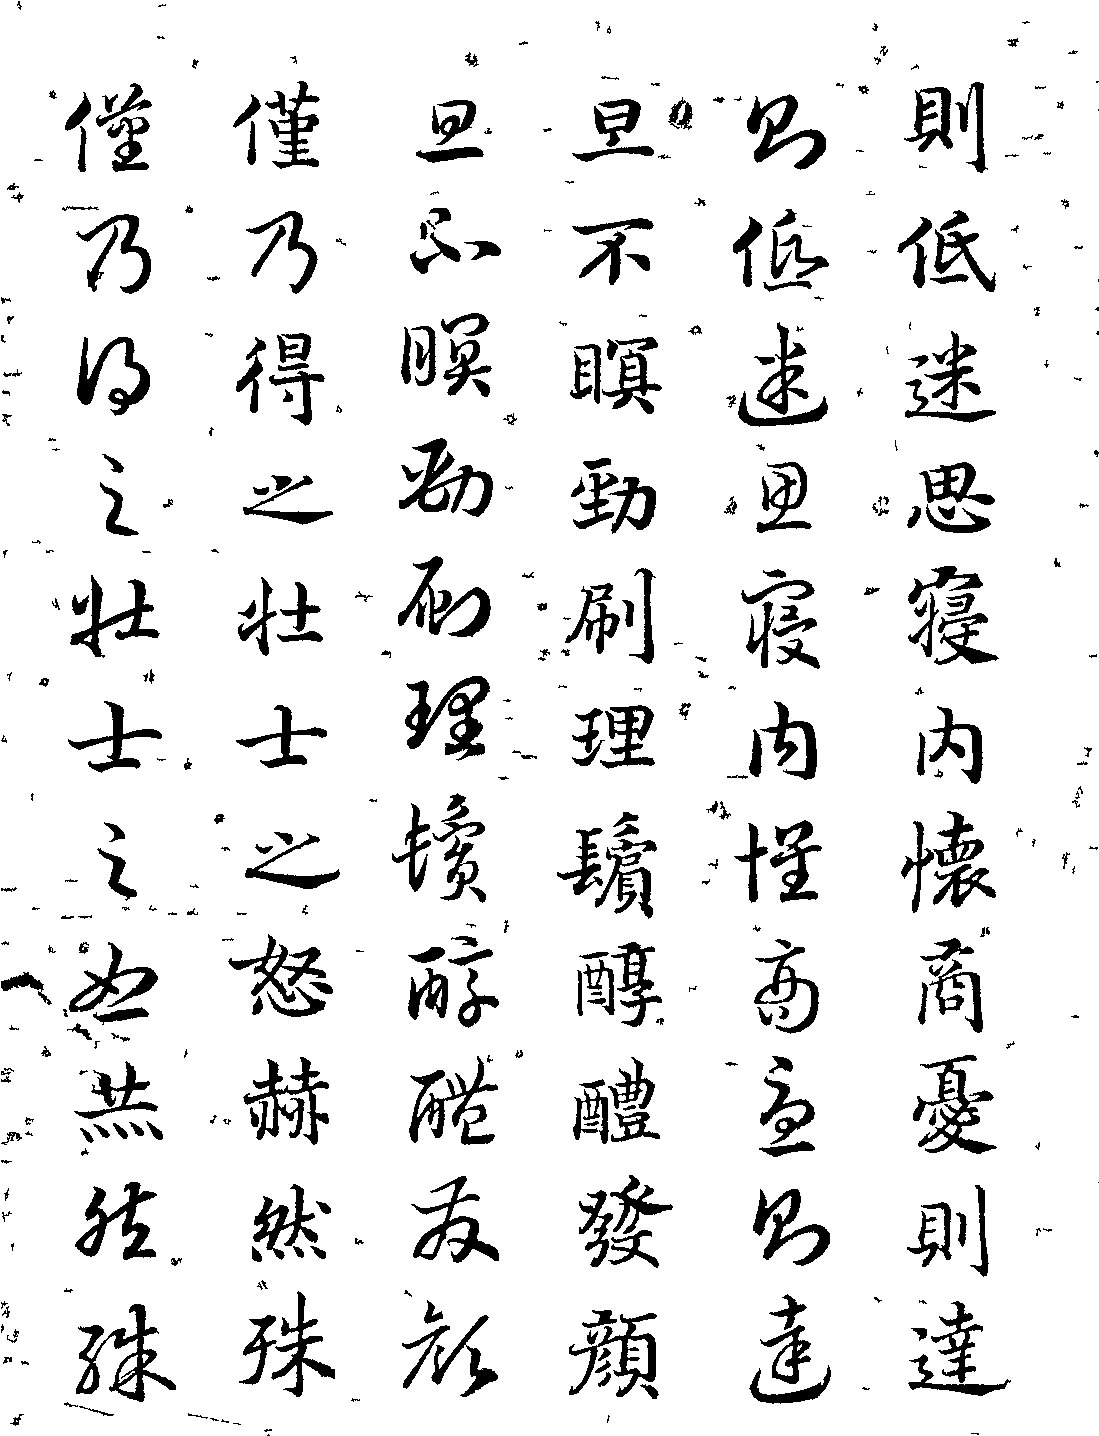 則低迷思寢内懷商憂則達
則低迷思寢内懷商憂則達
旦不瞑勁刷理鬢醇醴發顏
旦不瞑勁刷理鬢醇醴發顏
僅乃得之壯士之怒赫然殊
僅乃得之壯士之怒赫然殊